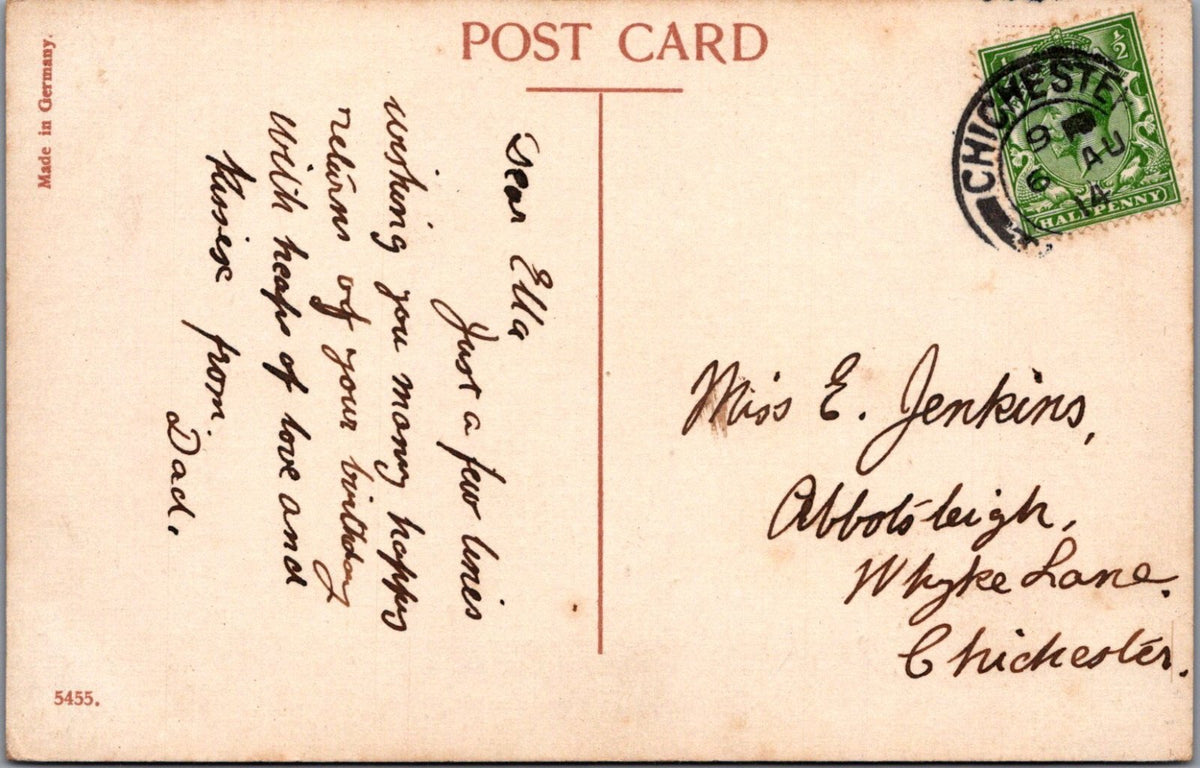 POST CARD
Made in Germany.
Dear Ella
Just a few lines
wishing you many happy
returns of your birthday
With heaps of love and
Kisses from
Dad.
½
CHICHESTE
9
AU
6
14
HALFPENNY
Miss E. Jenkins,
Abbotsleigh,
Whyke Lane.
Chichester.
5455.